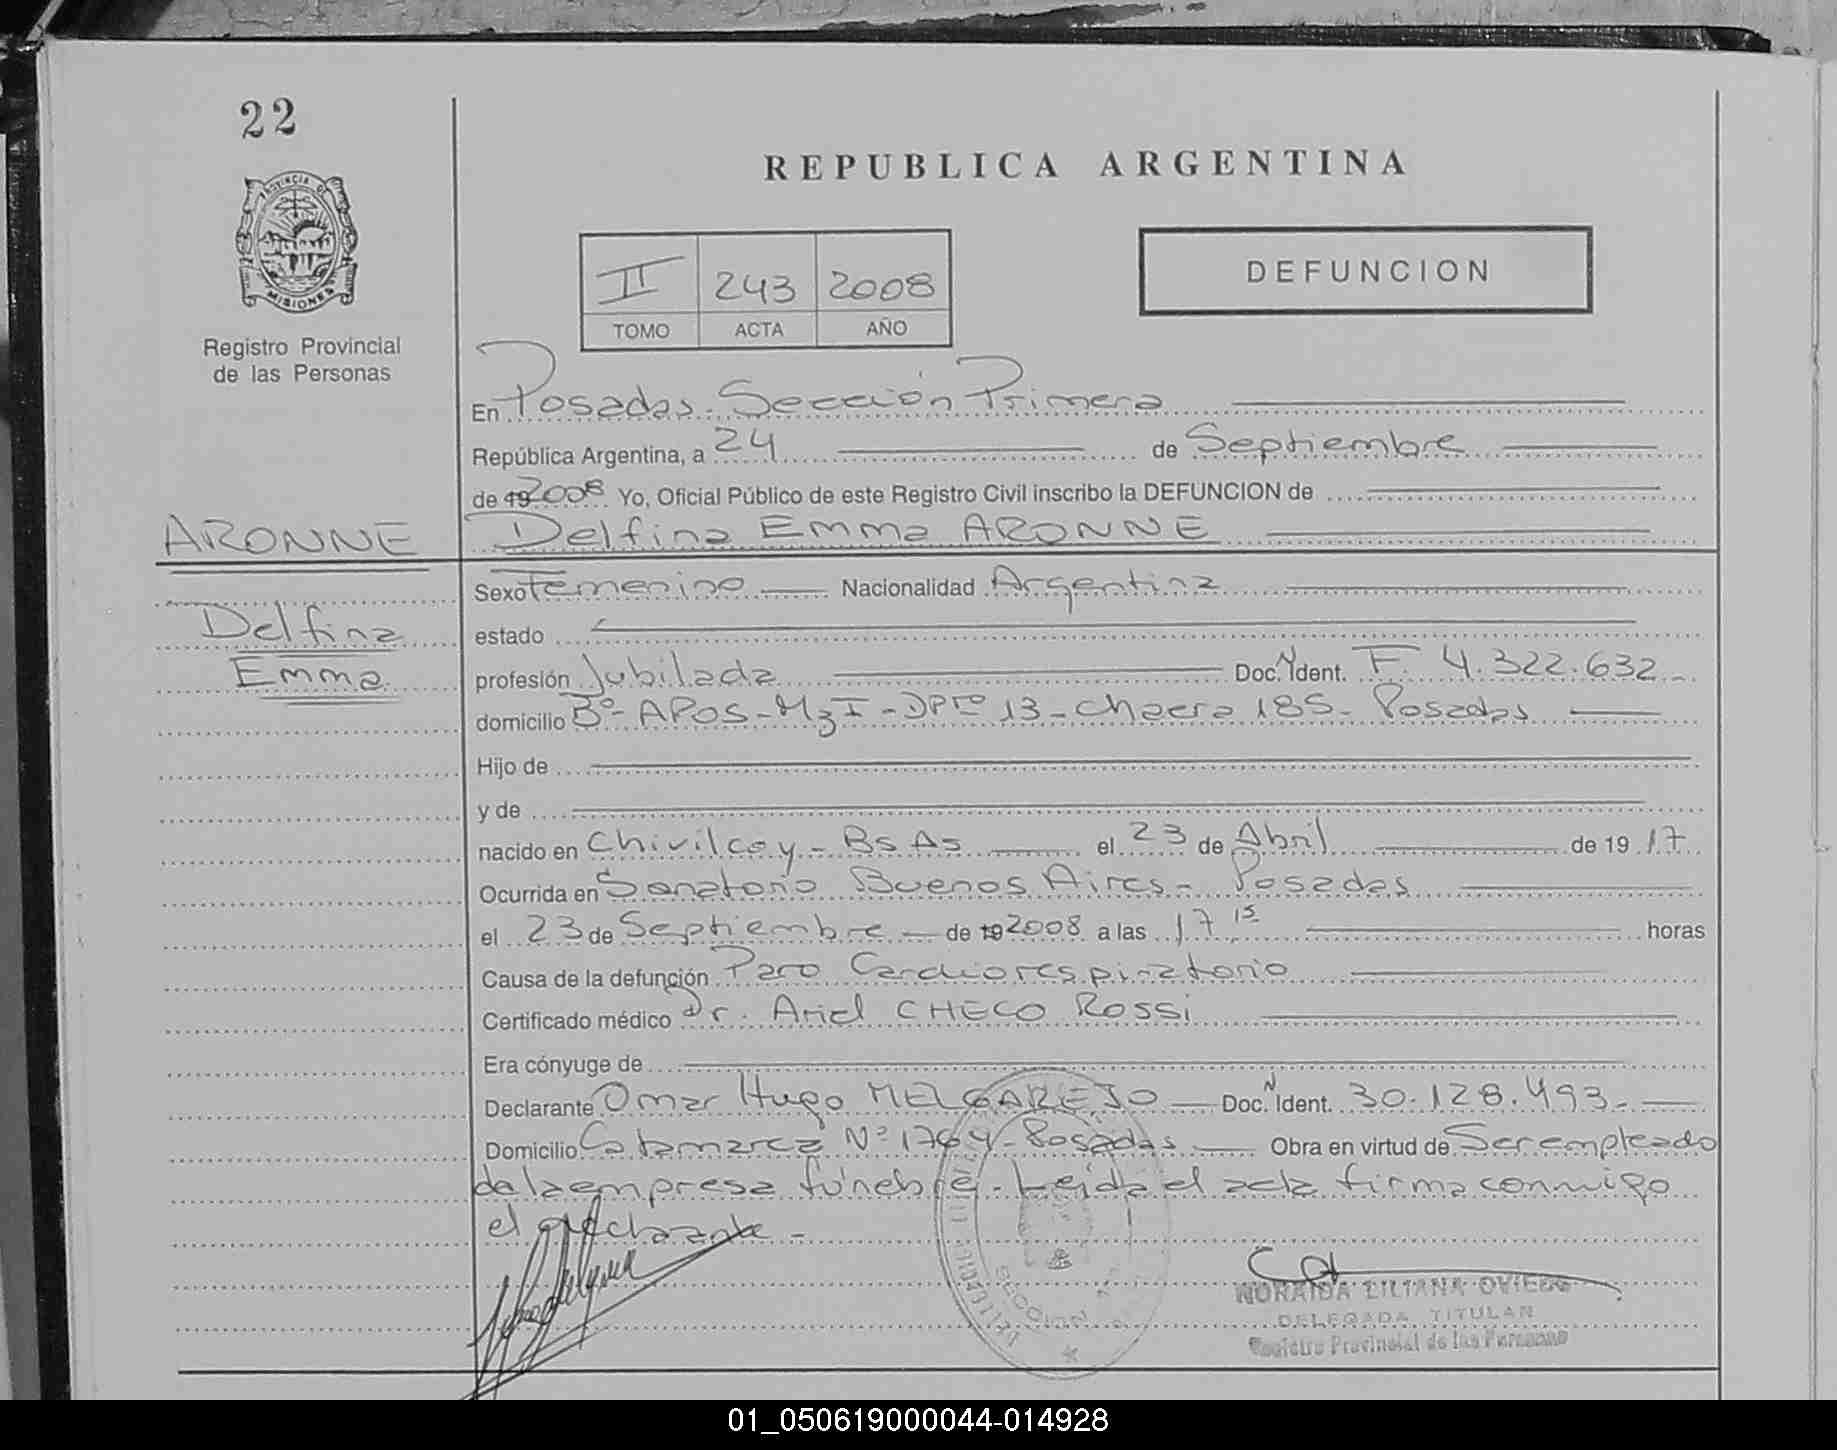 22
REPUBLICA ARGENTINA
PROVINCIA DE MISIONES
Registro Provincial
de las Personas
II 243 2008
TOMO ACTA AÑO
DEFUNCION
En Posadas - Sección Primera
República Argentina, a 24 de Septiembre
de 19 2008 Yo, Oficial Público de este Registro Civil inscribo la DEFUNCION de
ARONNE
Delfina Emma ARONNE
Delfina
Emma
Sexo Femenino Nacionalidad Argentina
estado
profesión Jubilada Doc. N Ident. F. 4.322.632
domicilio Bº- APOS - Mz I - DPtº 13 - Chacra 185 - Posadas
Hijo de
y de
nacido en Chivilcoy - Bs As el 23 de Abril de 19 17
Ocurrida en Sanatorio Buenos Aires - Posadas
el 23 de Septiembre de 19 2008 a las 17 15 horas
Causa de la defunción Paro Cardiorespiratorio
Certificado médico Dr. Ariel CHECO ROSSi
Era cónyuge de
Declarante Omar Hugo MELGAREJO Doc. N Ident. 30.128.493.-
Domicilio Catamarca Nº 1764 - Posadas Obra en virtud de Ser empleado
de la empresa fúnebre - Leída el acta firma conmigo
el declarante -
SECCION
NORAIDA LILIANA OVIEDO
DELEGADA TITULAR
Registro Provincial de las Personas
01_050619000044-014928